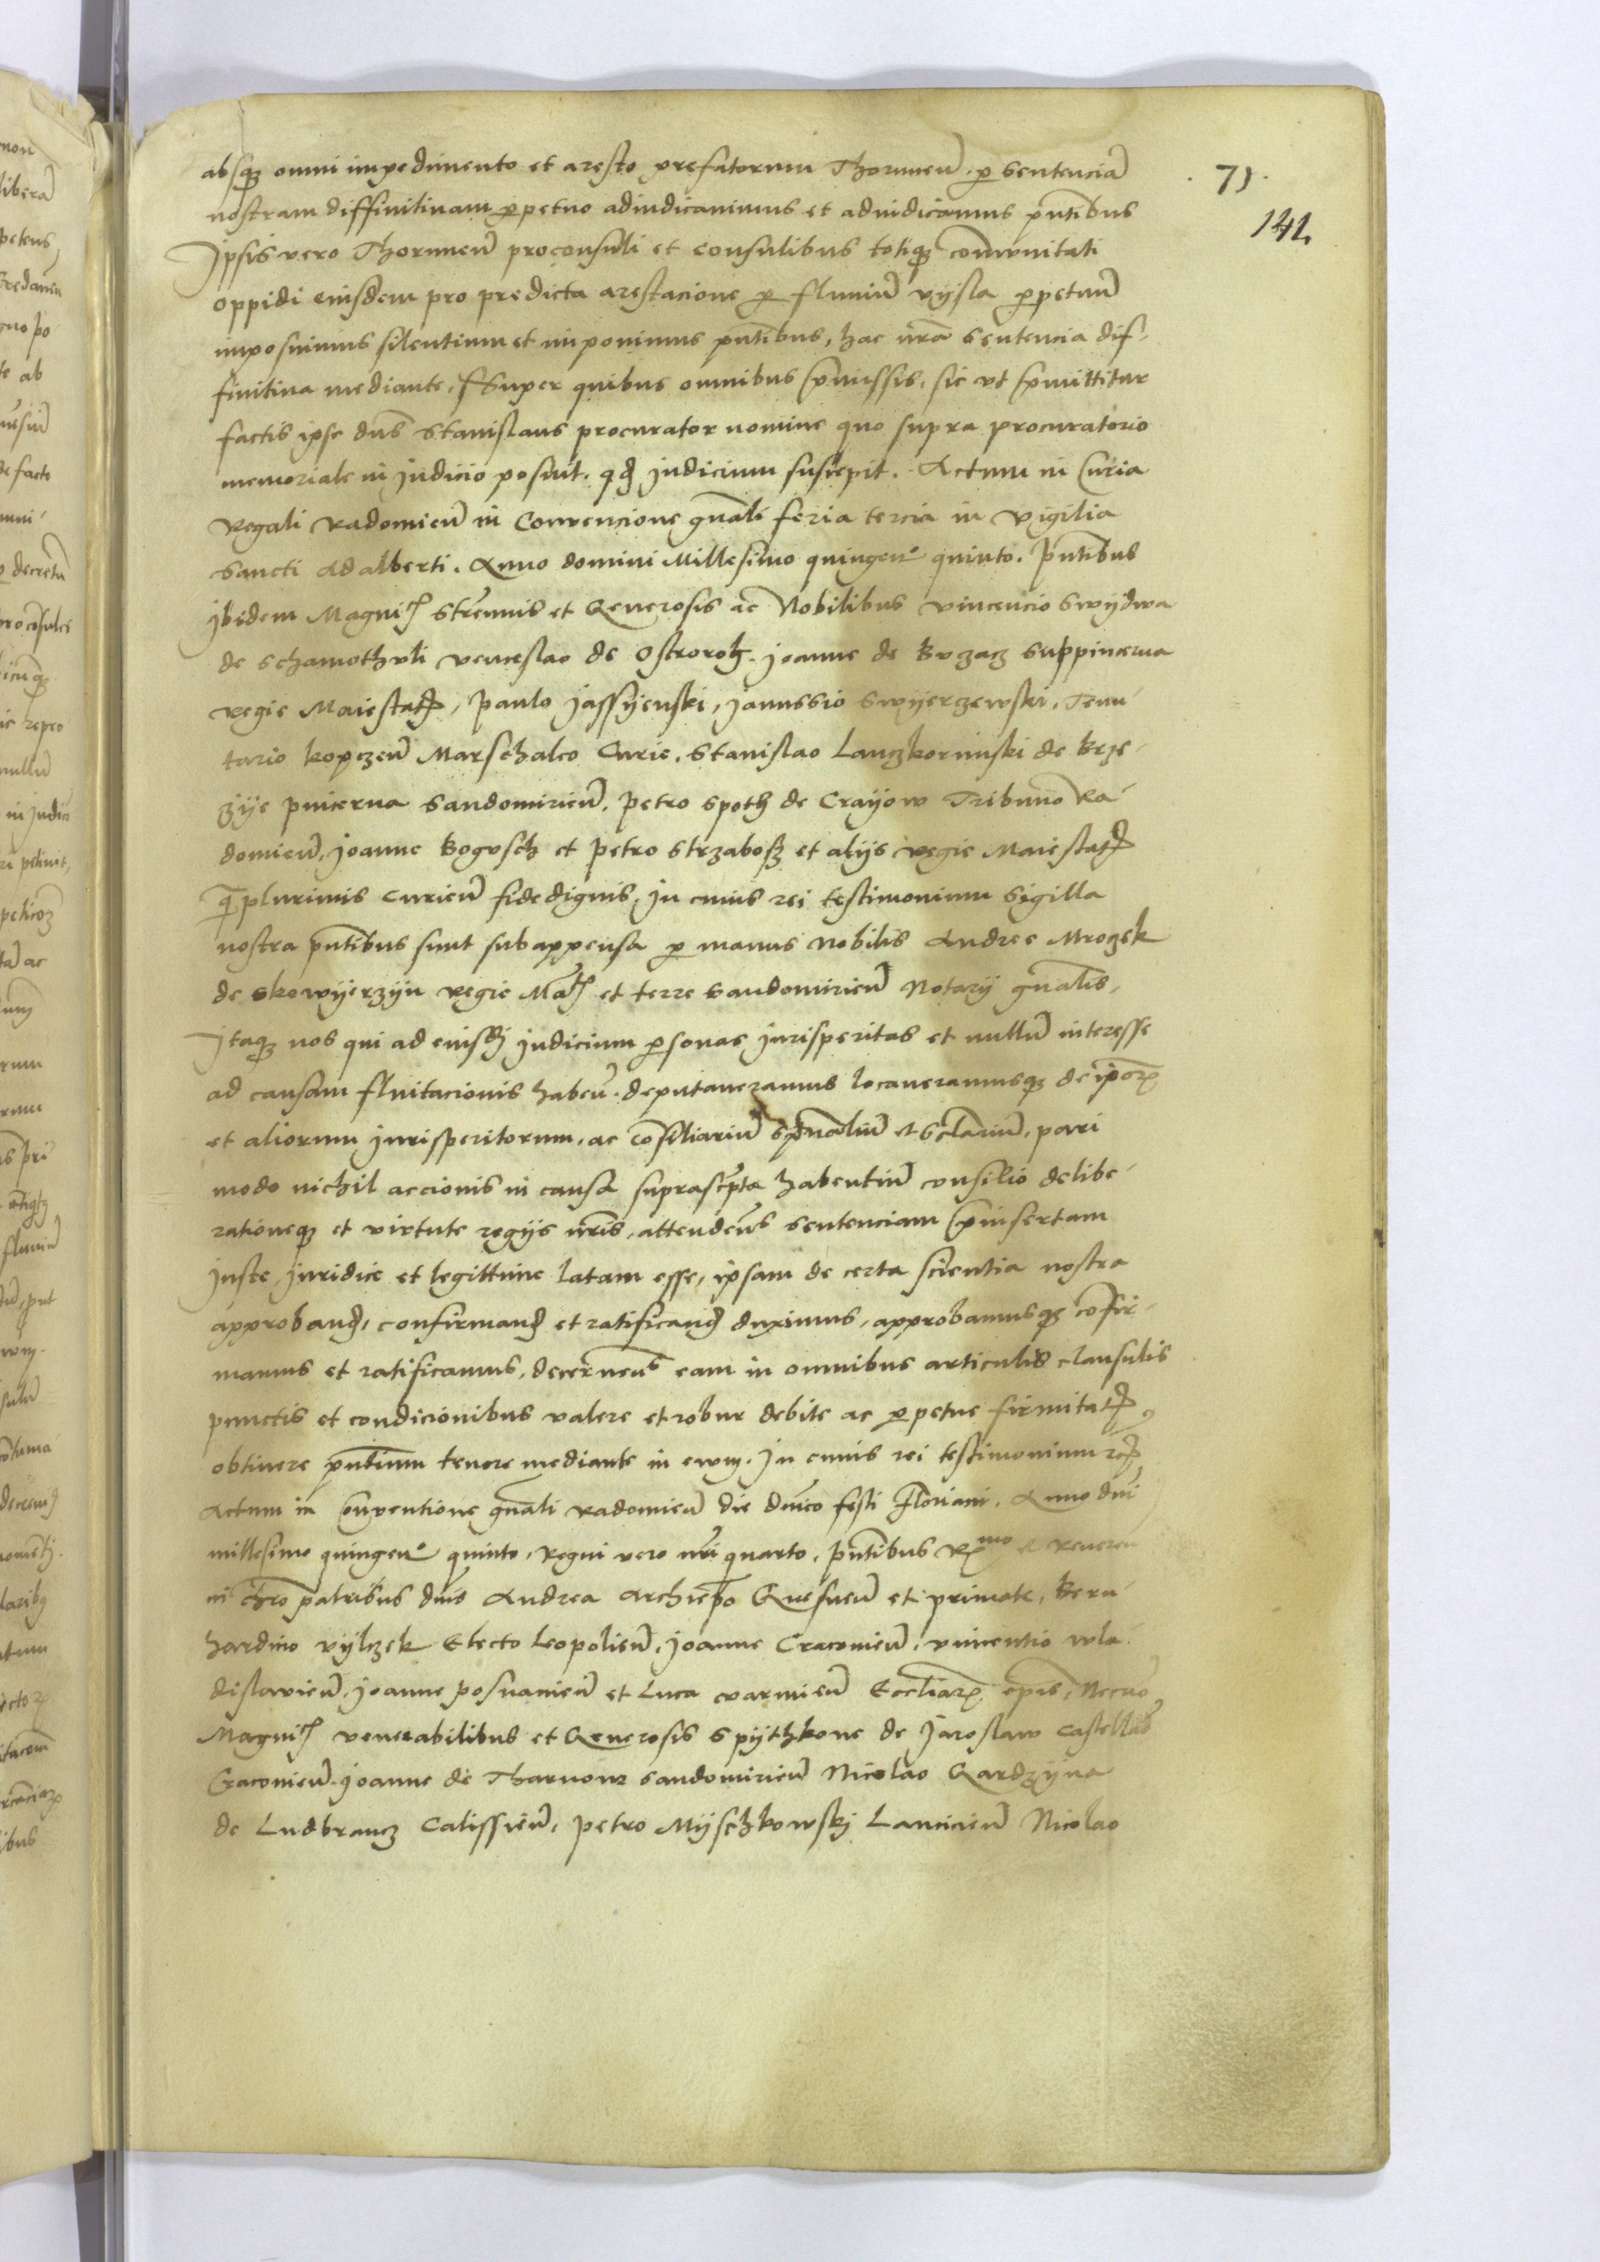 absq3 omni impedimento et aresto prefatorum Thorunen̄ . ꝑ sentenciā
71.
nostram diffinitivam ꝑpetuo adiudicavimus et adiudicamus p̄ntibus
141
Ipsis vero Thorunen̄ proconsuli et consulibus totiq3 com̄unitati
oppidi eiusdem pro predicta arestacione ꝑ fluviū vysla ꝑpetuū
imposuimus silentium et imponimus p̄ntibus, hac nrā sentencia dif-
finitiva mediante, Super quibus omnibus p̄missis, sic ut p̄mittitur
factis ipse dn̄s Stanislaus procurator nomine quo supra procuratorio
memoriale in judicio posuit. qd judicium suscepit. Actum in Curia
Regali Radomien̄ in Convencione gn̄ali feria tercia in vigilia
Sancti Adalberti. Anno domini Millesimo quingen° quinto. p̄ntibus
jbidem Magnif. strennis et Generosis ac Nobilibus vincencio Swydwa
de Schamothuli venceslao de Ostrorog. Joanne de Buzacz suppincerna
Regie Maiestatꝭ, Paulo Jassyenski, Janussio Swyerczewski, Tenu-
tario kopczen̄ Marschalco Curie. Stanislao Lanczkorunski de Brze-
zye pincerna Sandomirien̄, Petro Spoth de Crayow Tribuno Ra-
domien̄, Joanne Bogusch et Petro Strzabosz et alijs Regie Maiestatꝭ
q̄plurimis Curien̄ fidedignis, In cuius rei testimonium Sigilla
nostra p̄ntibus sunt subappensa ꝑ manus Nobilis Andree Mrozek
de Skowyerzyn Regie Mātꝭ et terre Sandomirien̄ Notarij gn̄alis,
Itaq3 nos qui ad eiusdj judicium ꝑsonas jurisperitas et nullū interesse
ad causam fluitacionis haben̄. deputaveramus locaveramusq3 de ip̄orꝝ
et aliorum jurisperitorum, ac cōsiliariū sp̄ualiū et sc̄lariū, pari
modo nichil accionis in causa suprascp̄ta habentiū consilio delibe-
rationeq3 et virtute regijs nr̄is, attenden̄s sentenciam p̄insertam
juste, juridice et legittime latam esse, ipsam de certa scientia nostra
approband, confirmand et ratificand duximus, approbamusq3 cōfir-
mamus et ratificamus, decernen̄s eam in omnibus articulis clausulis
punctis et condicionibus valere et robur debite ac ꝑpetue firmitatꝭ
obtinere p̄ntium tenore mediante in ewm. In cuius rei testimonium rc̄
Actum in Conventione gn̄ali Radomien̄ die dn̄ico festi Floriani, Anno dn̄i
millesimo quingen° quinto, Regni vero nr̄i quarto, p̄ntibus Rmo et Reveren
in chro patribus dn̄is Andrea Archiep̄o Gnesnen̄ et primate, Bern-
hardino vylczek Electo Leopolien̄, Joanne Cracovien̄, vincentio wla-
dislavien̄, Joanne posnanien̄ et Luca warmien̄ Eccliarꝝ ep̄is, Necnō
Magnif. venerabilibus et Generosis Spythkone de Jaroslaw Castellās
Cracovien̄. Joanne de Tharnow Sandomirien̄ Nicolao Gardzyna
de Ludbrancz Calissien̄, Petro Myschkowskj Lancicien̄ Nicolao